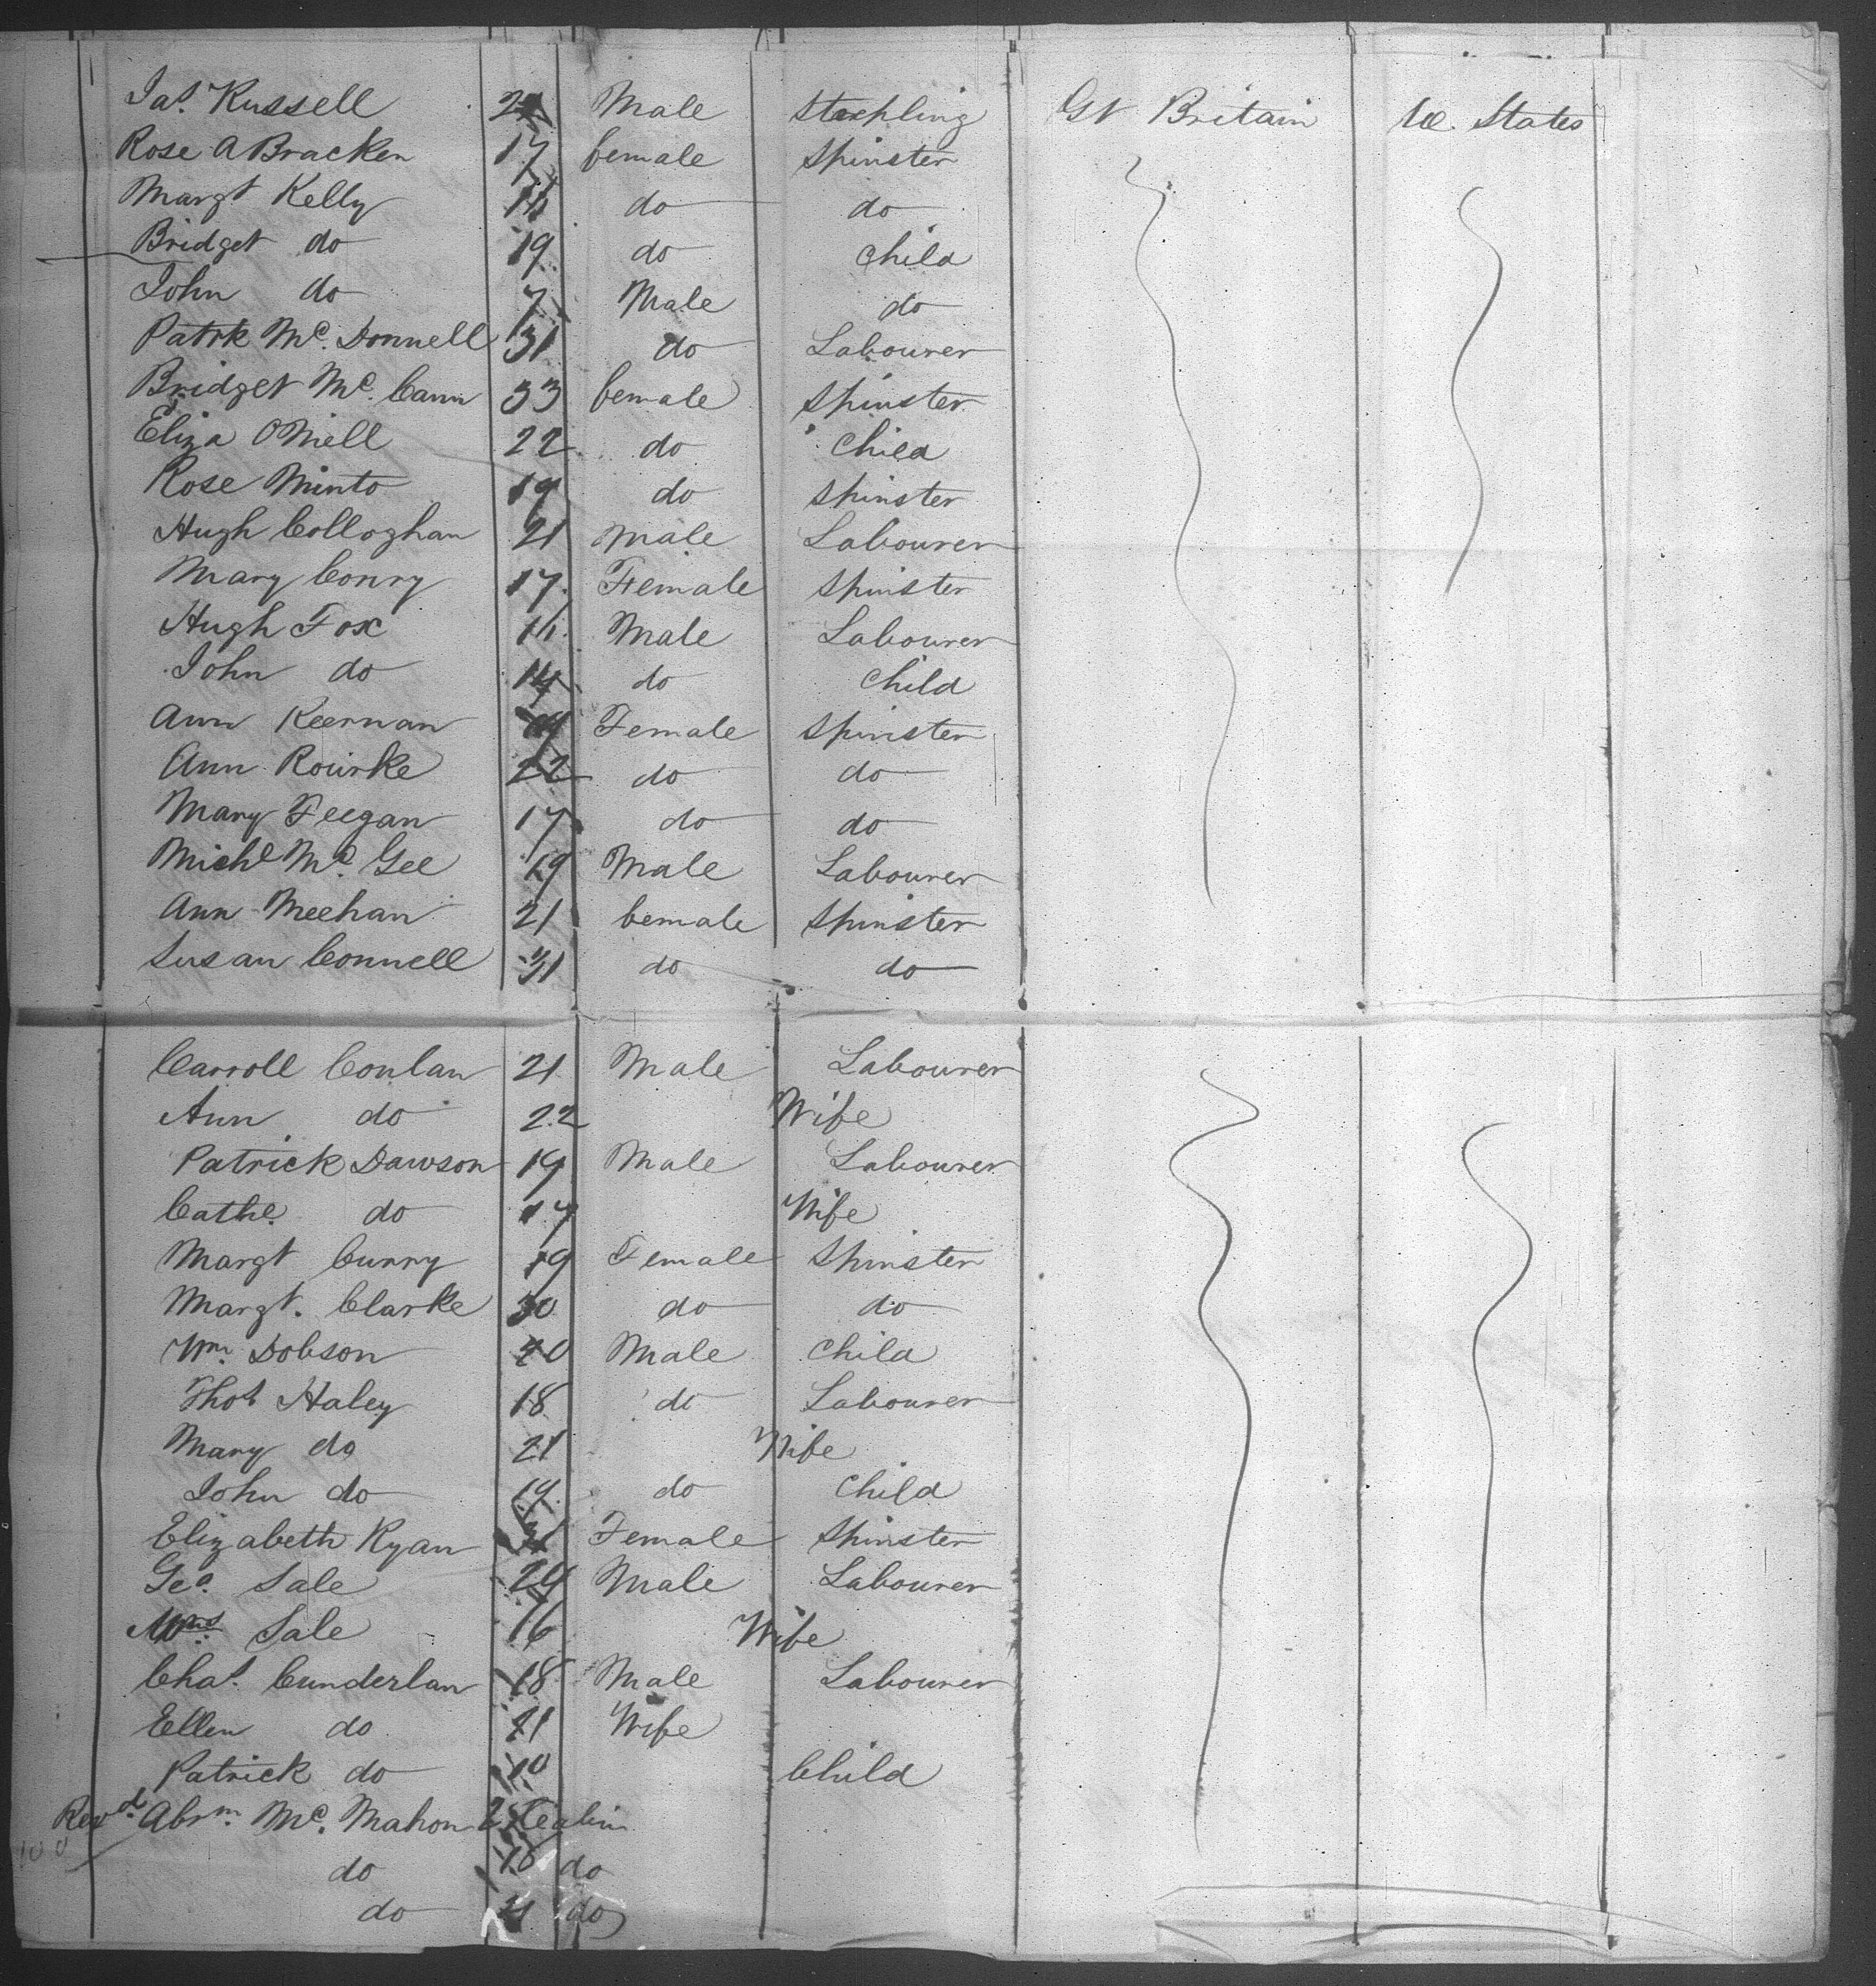 Jas. Russell Male Gt Britain U. States
Rose A Bracken 17 female Spinster
Margt Kelly do do
Bridget do 19 do Child
John do 7 Male do
Patrk Mc. Donnell 31 do Labourer
Bridget Mc. Cann 33 female Spinster
Eliza ONeill 22 do Child
Rose Minto 19 do Spinster
Hugh Colloghan 21 Male Labourer
Mary Conry 17 Female Spinster
Hugh Fox Male Labourer
John do 14 do Child
Ann Keernan Female Spinster
Ann Rourke 22 do do
Mary Feegan 17 do do
Michl Mc. Gee 19 Male Labourer
Ann Meehan 21 female Spinster
Susan Connell 31 do do
Carroll Conlan 21 Male Labourer
Ann do 22 Wife
Patrick Dawson 19 Male Labourer
Cathe. do 17 Wife
Margt Curry 19 Female Spinster
Margt. Clarke 30 do do
Wm. Dobson Male Child
Thos Haley 18 do Labourer
Mary do 21 Wife
John do 19 do Child
Elizabeth Ryan Female Spinster
Geo. Sale 24 Male Labourer
Mrs. Sale 16 Wife
Chas. Cunderlan 18 Male Labourer
Ellen do Wife
Patrick do 10 Child
Revd Abrm. Mc. Mahon Cabin
do 18 do
do 21 do